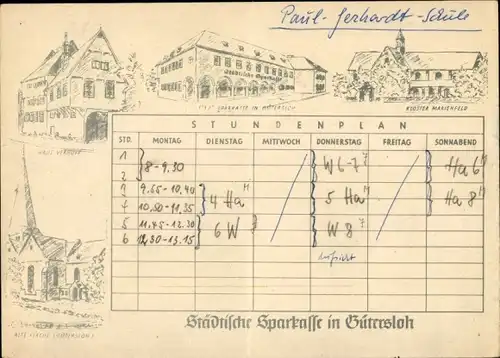 Paul-Gerhardt-Schule
SPARKASSE IN GÜTERSLOH
KLOSTER MARIENFELD
HAUS VEERHOFF
STUNDENPLAN
STD. MONTAG DIENSTAG MITTWOCH DONNERSTAG FREITAG SONNABEND
1
2 8-9.30 W 6-7 Ha 6
3 9.55-10.40 4 Ha 5 Ha Ha 8
4 10.50-11.35
5 11.45-12.30 6 W W 8
6 12.30-13.15
ALTE KIRCHE (GÜTERSLOH)
Städtische Sparkasse in Gütersloh